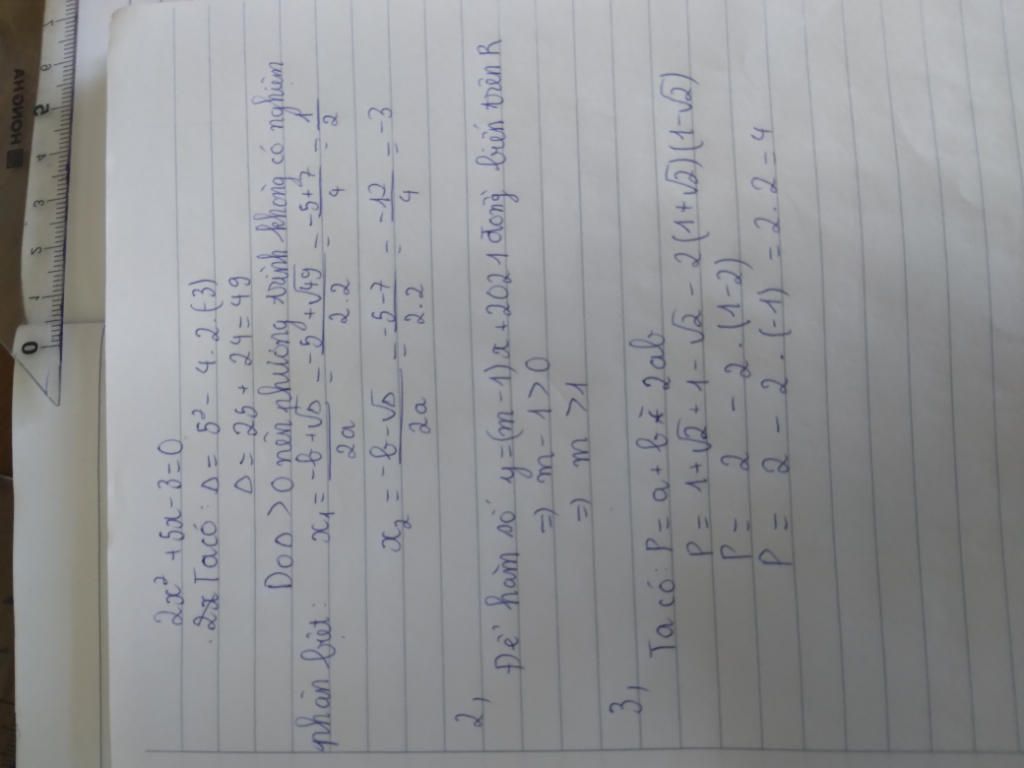 2x² + 5x - 3 = 0
Ta có: Δ = 5² - 4.2.(-3)
Δ = 25 + 24 = 49
Do Δ > 0 nên phương trình không có nghiệm
phân biệt: x₁ = (-b+√Δ)/2a = (-5+√49)/2.2 = (-5+7)/4 = 1/2
x₂ = (-b-√Δ)/2a = (-5-7)/2.2 = -12/4 = -3
2,
Để hàm số y = (m-1)x + 2021 đồng biến trên R
=> m - 1 > 0
=> m > 1
3,
Ta có: P = a + b - 2ab
P = 1+√2 + 1-√2 - 2(1+√2)(1-√2)
P = 2 - 2.(1-2)
P = 2 - 2.(-1) = 2.2 = 4
HONOH AN
0 1 2 3 4 5 6 7